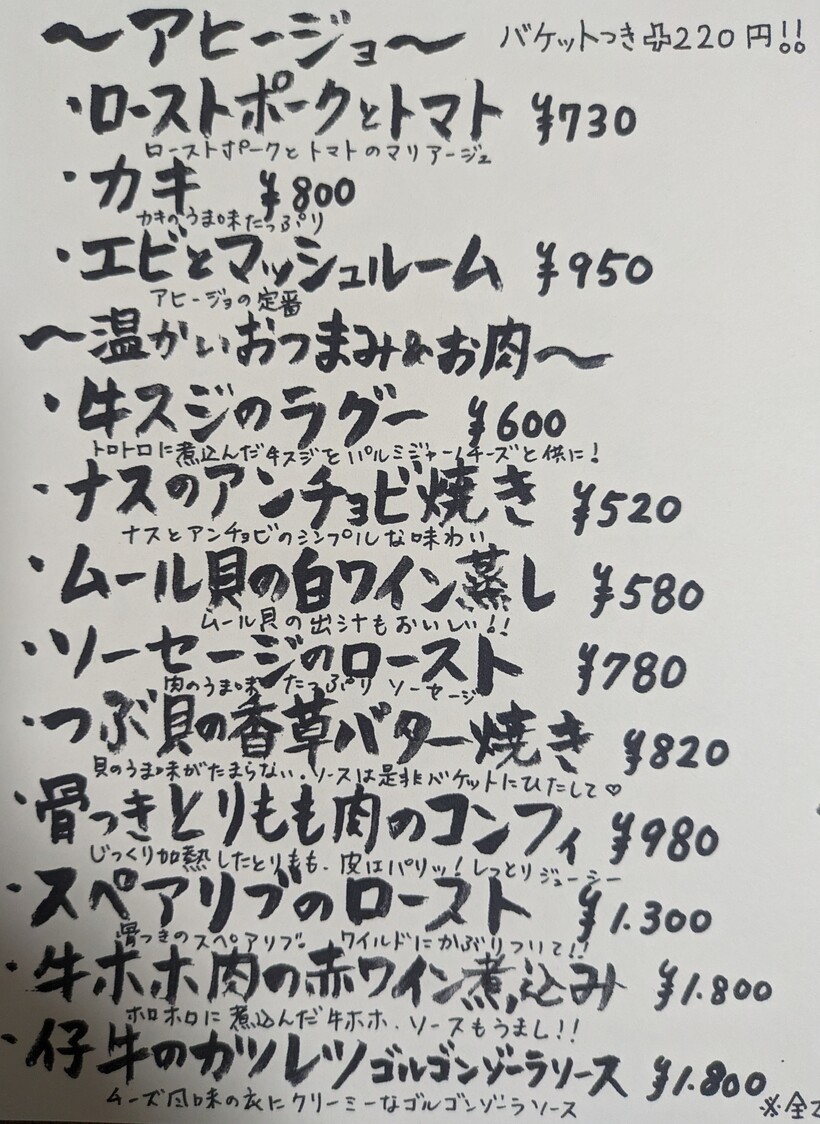 〜アヒージョ〜 バケットつき✙220円!!
・ローストポークとトマト ¥730
ローストポークとトマトのマリアージュ
・カキ ¥800
カキのうま味たっぷり
・エビとマッシュルーム ¥950
アヒージョの定番
〜温かいおつまみ&お肉〜
・牛スジのラグー ¥600
トロトロに煮込んだ牛スジをパルミジャーノチーズと供に!
・ナスのアンチョビ焼き ¥520
ナスとアンチョビのシンプルな味わい
・ムール貝の白ワイン蒸し ¥580
ムール貝の出汁もおいしい!!
・ソーセージのロースト ¥780
肉のうま味たっぷりソーセージ
・つぶ貝の香草バター焼き ¥820
貝のうま味がたまらない。ソースは是非バケットにひたして♡
・骨つきとりもも肉のコンフィ ¥980
じっくり加熱したとりもも、皮はパリッ!しっとりジューシー
・スペアリブのロースト ¥1.300
骨つきのスペアリブ。ワイルドにかぶりついて!!
・牛ホホ肉の赤ワイン煮込み ¥1.800
ホロホロに煮込んだ牛ホホ、ソースもうまし!!
・仔牛のカツレツゴルゴンゾーラソース ¥1.800
チーズ風味の衣にクリーミーなゴルゴンゾーラソース
※全て